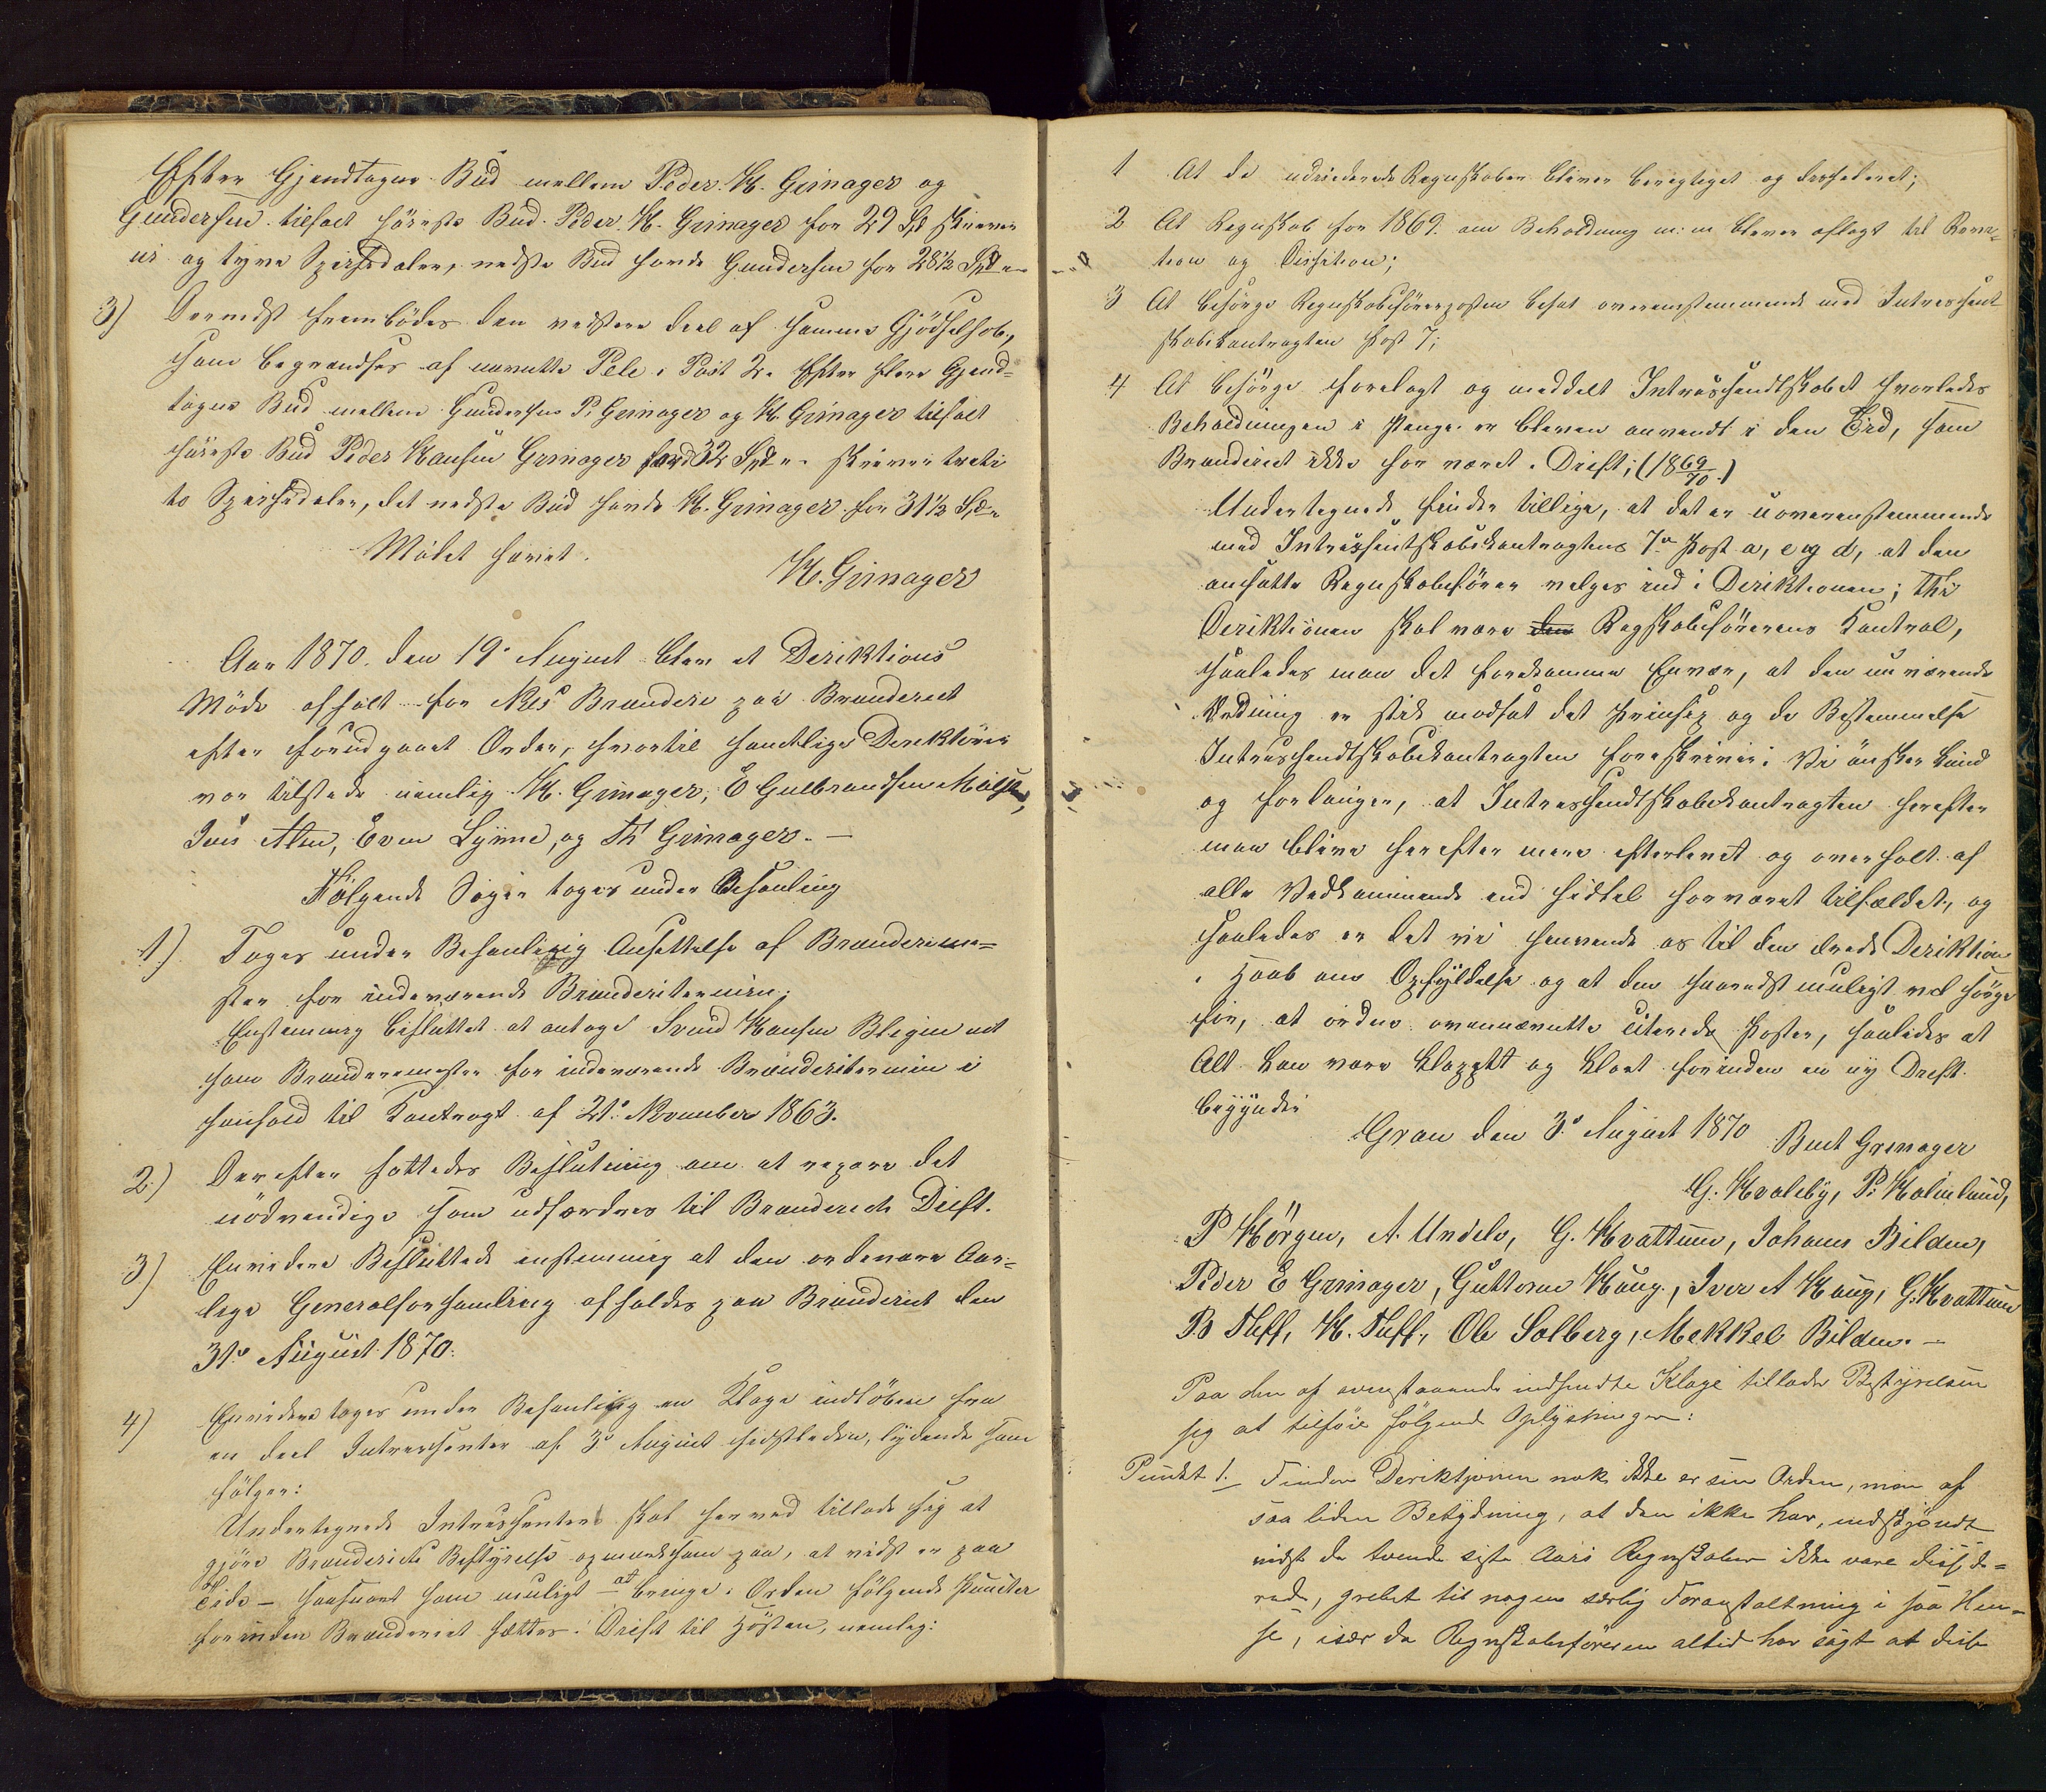 Efter Gjendtagne Bud mellem Peder H. Grinager og
Gundersen tilfalt høieste Bud Peder H. Grinager for 29 Spd skriver
ni og tyve Speciedaler, nedste Bud havde Gundersen for 28½ Spd
3) Dernedst frembödes den vestere deel af samme Gjödselhob,
som begrændses af nevnte Pele i Post 2. Efter flere Gjend-
tagne Bud mellem Gundersen P. Grinager og H. Grinager tilfalt
høieste Bud Peder Hansen Grinager for 32 Spd skriver treti
to Speciedaler, det nedste Bud havde H. Grinager for 31½ Spd
Mødet hævet.
H. Grinager
Aar 1870. den 19de August blev et Direktions
Møde afholt for Næs Brænderi paa Brænderiet
efter forudgaaet Order, hvortil samtlige Direktörer
var tilstede nemlig H. Grinager, E Gulbrandsen
Jens Alm, Even Lynne, og Th Grinager. —
Følgende Sager toges under Behanling
1.) Toges under Behanling Ansettelse af Brænderime-
ster for indeværende Brænderitermin;
Enstemmig besluttet at antage Svend Hansen Blegen
som Brænderimester for indeværende Brænderitermin i
henhold til Kontragt af 21de November 1863.
2.) Derefter fattedes Beslutning om at repare det
nödvendige som udfordres til Brænderiets Drift.
3) Envidere Besluttede enstemmig at den ordenære Aar-
lige Generalforsamling afholdes paa Brænderiet den
31te August 1870.
4) Envidere toges under Behanling en Klage indløben fra
en deel Intressenter af 3de August sidstleden, lydende som
følger:
Undertegnede Intressenter skal herved tillade sig at
gjøre Brænderiets Bestyrelse opmerksom paa, at vidst er paa
Tide — saasnart som muligt at bringe i Orden følgende Puncter
forinden Brænderiet sættes i Drift til Høsten, nemlig:
1 At de udeciderede Regnskaber bliver berigtiget og desideret;
2 At Regnskab for 1869 om Beholdning m:m blever aflagt til Revi-
tion og Disition;
3 At besörge Regnskabsførerposten besat overenstemmende med Intressent
skabskontragten Post 7;
4 At besörge forelagt og meddelt Intressendtskabet hvorledes
Beholdningen i Penge er bleven anvendt i den Tid, som
Brænderiet ikke har været i Drift; (1869/70.)
Undertegnede finder tillige, at det er uoverenstemmende
med Intressentskabskontragtens 7de Post a, c og d, at den
ansatte Regnskabsfører velges ind i Deriktionen; thi
Deriktionen skal være den Regskabsførerens Kontrol,
saaledes maa det forekomme Enver, at den nuværende
Ordning er stik modsat det Prinsip og de Bestemmelse
Intressendtskabskontragten foreskriver. Vi ønsker kund
og forlanger, at Intressendtskabskontragten herefter
maa blive herefter mere efterlevet og overholt af
alle Vedkommende end hidtil har været tilfældet, og
saaledes er det vi henvende os til den ærede Deriktion
i Haab om Opfyldelse og at den snarest muligt vil sørge
for, at ordne ovennævnte citerede Poster, saaledes at
Alt kan være klappet og klart forinden en ny Drift
begynder
Gran den 3de August 1870 Bent Grinager
G. Hvaleby, P. Holmlund,
P Hörgen, A. Undelo, G. Hvattum, Johans Bilden,
Peder E Grinager, Guttorm Haug, Iver A Haug, G. Hvattum
B Tuff, H. Tuff, Ole Solberg, Mekkel Bilden. —
Paa den af ovenstaaende indsendte Klage tillader Bestyrelsen
sig at tilføie følgende Oplysninger:
Punkt 1. Finder Deriktjonen nok ikke er sin Orden, men af
saa liden Betydning, at den ikke har, endskjøndt
vidst de tvende siste Aars Regnskaber ikke vare diside-
rede, grebet til nogen særlig Foranstaltning i saa Hen-
se, især da Regnskabsføreren altid har sagt at disse